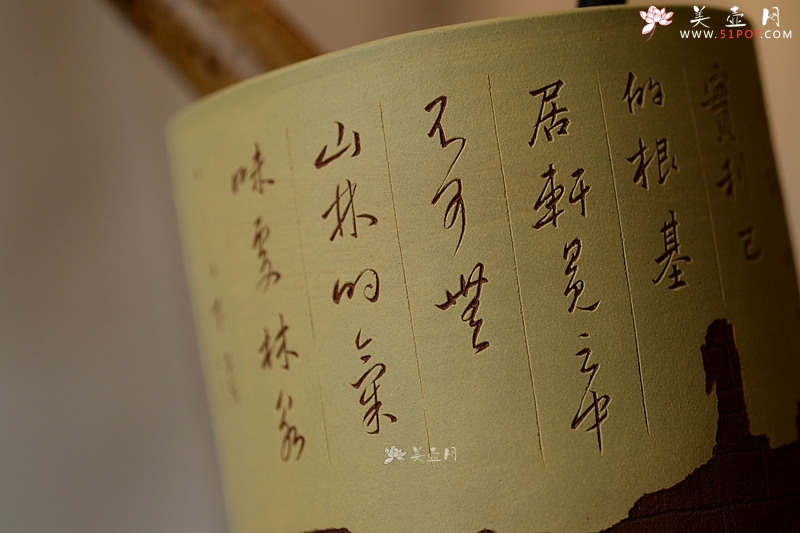 美壶网
WWW.51POT.COM
實利己
的根基
居軒冕之中
不可無
山林的氣
味處林泉
美壶网